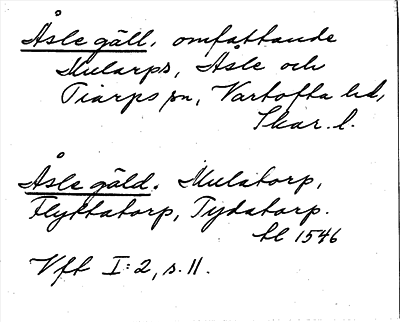 Åsle gäll, omfattande
Mularps, Åsle och
Tiarps sn, Vartofta hd,
Skar. l.
Åsle gäld. Mulatorp,
Flyttatorp, Tydatorp.
tl 1546
Vft I:2, s. 11.